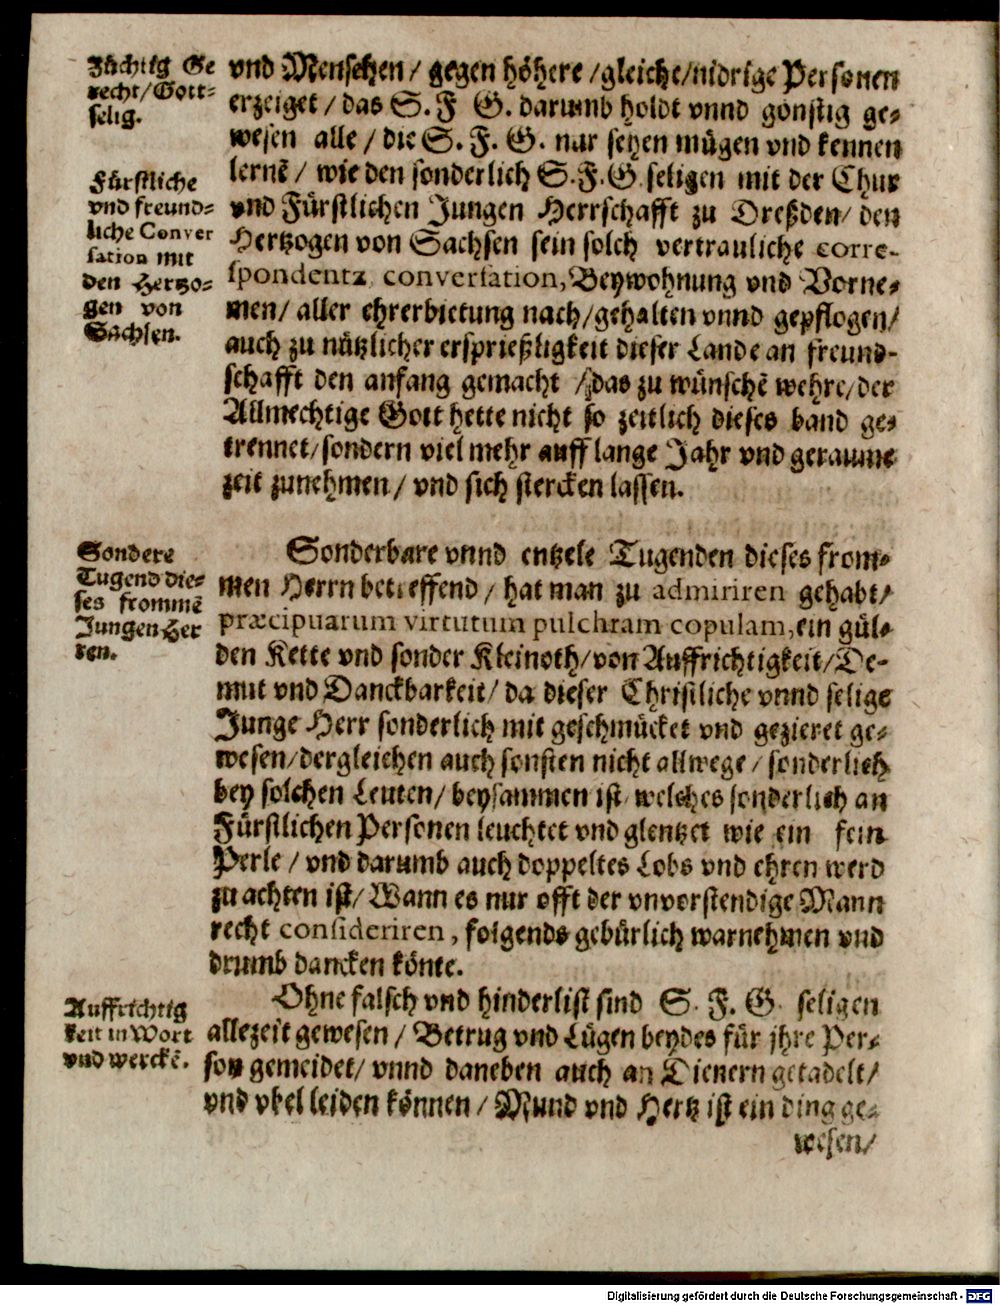 Züchtig Ge
recht/Gott-
selig.
vnd Menschen/ gegen höhere /gleiche/nidrige Personen
erzeiget / das S. F G. darumb holdt vnnd gönstig ge-
wesen alle / die S. F. G. nur sehen mügen vnd kennen
lernē / wie den sonderlich S. F. G. seligen mit der Chur
Fürstliche
vnd freund-
liche Conver
sation mit
den Hertzo-
gen von
Sachsen.
vnd Fürstlichen Jungen Herrschafft zu Dreßden/ den
Hertzogen von Sachsen sein solch vertrauliche corre-
spondentz, conversation, Beywohnung vnd Vorne-
men/ aller ehrerbietung nach/gehalten vnnd gepflogen/
auch zu nützlicher ersprießligkeit dieser Lande an freund-
schafft den anfang gemacht / das zu wünschē wehre/der
Allmechtige Gott hette nicht so zeitlich dieses band ge-
trennet/sondern viel mehr auff lange Jahr vnd geraume
zeit zunehmen / vnd sich stercken lassen.
Sondere
Tugend die-
ses frommē
Jungen Her
ren.
Sonderbare vnnd entzele Tugenden dieses from-
men Herrn betreffend / hat man zu admiriren gehabt/
præcipuarum virtutum pulchram copulam, ein gül-
den Kette vnd sonder Kleinoth/von Auffrichtigkeit/De-
mut vnd Danckbarkeit/ da dieser Christliche vnnd selige
Junge Herr sonderlich mit geschmücket vnd gezieret ge-
wesen/dergleichen auch sonsten nicht allwege / sonderlich
bey solchen Leuten/ beysammen ist/ welches sonderlich an
Fürstlichen Personen leuchtet vnd glentzet wie ein fein
Perle / vnd darumb auch doppeltes Lobs vnd ehren werd
zu achten ist/ Wann es nur offt der vnvorstendige Mann
recht consideriren, folgends gebürlich warnehmen vnd
drumb dancken könte.
Auffrichtig
keit in Wort
vnd werckē.
Ohne falsch vnd hinderlist sind S. F. G. seligen
allezeit gewesen / Betrug vnd Lügen beydes für jhre Per-
son gemeidet/ vnnd daneben auch an Dienern getadelt/
vnd vbel leiden können / Mund vnd Hertz ist ein ding ge-
wesen/
Digitalisierung gefördert durch die Deutsche Forschungsgemeinschaft - DFG